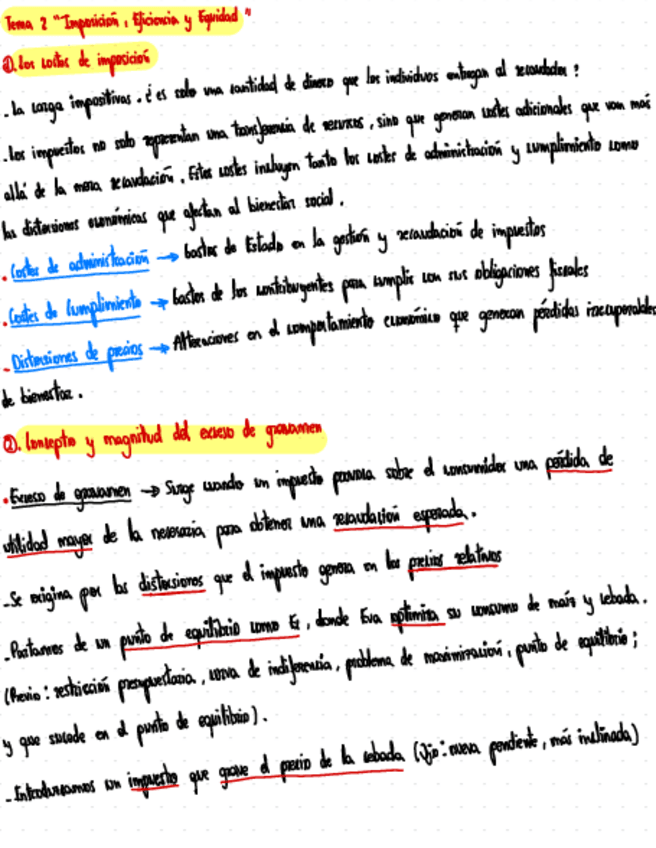 Tema 2 "Imposición, Eficiencia y Equidad"
①. los costes de imposición
- la carga impositivas. ¿es solo una cantidad de dinero que los individuos entregan al recaudador?
- los impuestos no solo representan una transferencia de recursos, sino que generan costes adicionales que van más
allá de la mera recaudación. Estos costes incluyen tanto los costes de administración y cumplimiento como
las distorsiones económicas que afectan al bienestar social.
· Costes de administración → Gastos de Estado en la gestión y recaudación de impuestos
· Costes de Cumplimiento → Gastos de los contribuyentes para cumplir con sus obligaciones fiscales
- Distorsiones de precios → Alteraciones en el comportamiento económico que generan pérdidas irrecuperables
de bienestar.
②. Concepto y magnitud del exceso de gravamen
· Exceso de gravamen → Surge cuando un impuesto provoca sobre el consumidor una pérdida de
utilidad mayor de la necesaria para obtener una recaudación esperada.
- Se origina por las distorsiones que el impuesto genera en los precios relativos
- Partamos de un punto de equilibrio como E₁, donde Eva optimiza su consumo de maíz y cebada.
(Previo: restricción presupuestaria, curva de indiferencia, problema de maximización, punto de equilibrio;
y que sucede en el punto de equilibrio).
- Introduzcamos un impuesto que grave el precio de la cebada (Ojo: nueva pendiente, más inclinada)